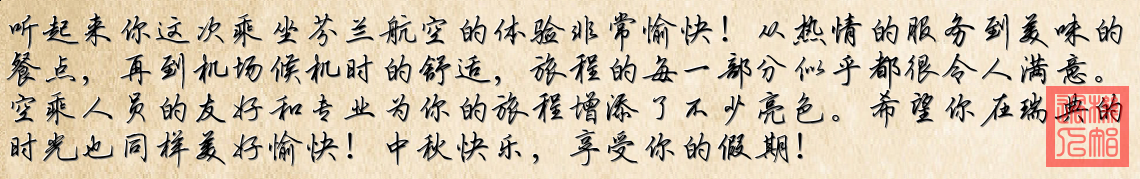 听起来你这次乘坐芬兰航空的体验非常愉快！从热情的服务到美味的
餐点，再到机场候机时的舒适，旅程的每一部分似乎都很令人满意。
空乘人员的友好和专业为你的旅程增添了不少亮色。希望你在瑞典的
时光也同样美好愉快！中秋快乐，享受你的假期！